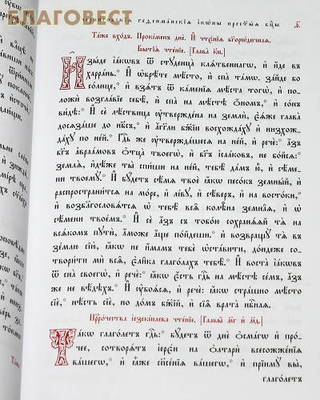 БЛАГОВЕСТ
гедсимⷶнскїѧ їкѡны прест҃ыѧ бц҃ы
Та́же вхо́дъ. Прокі́менъ днѐ. И҆ чтє́нїѧ бг҃оро́дична.
Бытїѧ̀ чте́нїе.
И҆зы́де і҆а́кѡвъ ѿ стꙋденца̀ клѧ́твеннагѡ, и҆ и҆́де въ
харра́нь. И҆ ѡ҆брѣ́те мѣ́сто, и҆ спа̀ та́мѡ: за́йде бо
со́лнце, и҆ взѧ́тъ ѿ ка́менїѧ мѣ́ста тогѡ̀, и҆ по-
ложѝ возгла́вїе себѣ̀, и҆ спа̀ на мѣ́стѣ ѻ҆́номъ, и҆ со́нъ
ви́дѣ: И҆ сѐ лѣ́ствица ᲂу҆твержде́на на землѝ, є҆ѧ́же глава̀
досѧза́ше до нб҃съ, и҆ а҆́гг҃ли бж҃їи восхожда́хꙋ и҆ низхож-
да́хꙋ по не́й. Гд҇ь же ᲂу҆твержда́шесѧ на не́й, и҆ речѐ: а҆́зъ
бг҃ъ а҆враа́мовъ ѻ҆тца̀ твоегѡ̀, и҆ бг҃ъ і҆саа́ковъ, не бо́йсѧ:
землѧ̀, и҆дѣ́же ты̀ спи́ши на не́й, тебѣ̀ да́мъ ю҆̀, и҆ сѣ́ме-
ни твоемꙋ̀. И҆ бꙋ́детъ сѣ́мѧ твоѐ ꙗ҆́кѡ песо́къ земны́й, и҆
распространи́тсѧ на мо́ре, и҆ лі́вꙋ, и҆ сѣ́веръ, и҆ на восто́ки:
и҆ возблагословѧ́тсѧ ѡ҆ тебѣ̀ всѧ̑ кѡлѣ́на земна̑ѧ, и҆ ѡ҆
сѣ́мени твое́мъ. И҆ сѐ а҆́зъ съ тобо́ю сохранѧ́ѧй тѧ̀ на
всѧ́комъ пꙋтѝ, а҆́може а҆́ще по́йдеши: и҆ возвращꙋ́ тѧ въ
зе́млю сїю̀, ꙗ҆́кѡ не и҆́мамъ тебѐ ѡ҆ста́вити, до́ндеже со-
твори́ти мѝ всѧ̑, є҆ли̑ка гл҃ахъ тебѣ̀. И҆ воста̀ і҆а́кѡвъ
ѿ сна̀ своегѡ̀, и҆ речѐ: ꙗ҆́кѡ є҆́сть гд҇ь на мѣ́стѣ се́мъ, а҆́зъ
же не вѣ́дѣхъ. И҆ ᲂу҆боѧ́сѧ, и҆ речѐ: ꙗ҆́кѡ стра́шно мѣ́сто
сїѐ, нѣ́сть сїѐ, но до́мъ бж҃їй, и҆ сїѧ̑ врата̀ нбⷭ҇наѧ.
Про́рочества і҆езекі́илева чте́нїе. [Глава̀ м҃г и҆ м҃д.]
Та́кѡ глаго́летъ гд҇ь: бꙋ́детъ ѿ днѐ ѻ҆сма́гѡ и҆ про́-
чее, сотворѧ́тъ і҆ере́и на ѻ҆лтарѝ всесожжє́нїѧ
ва́шегѡ, и҆ ꙗ҆̀же сп҃се́нїѧ ва́шегѡ: и҆ прїимꙋ̀ вы̀,
глаго́летъ